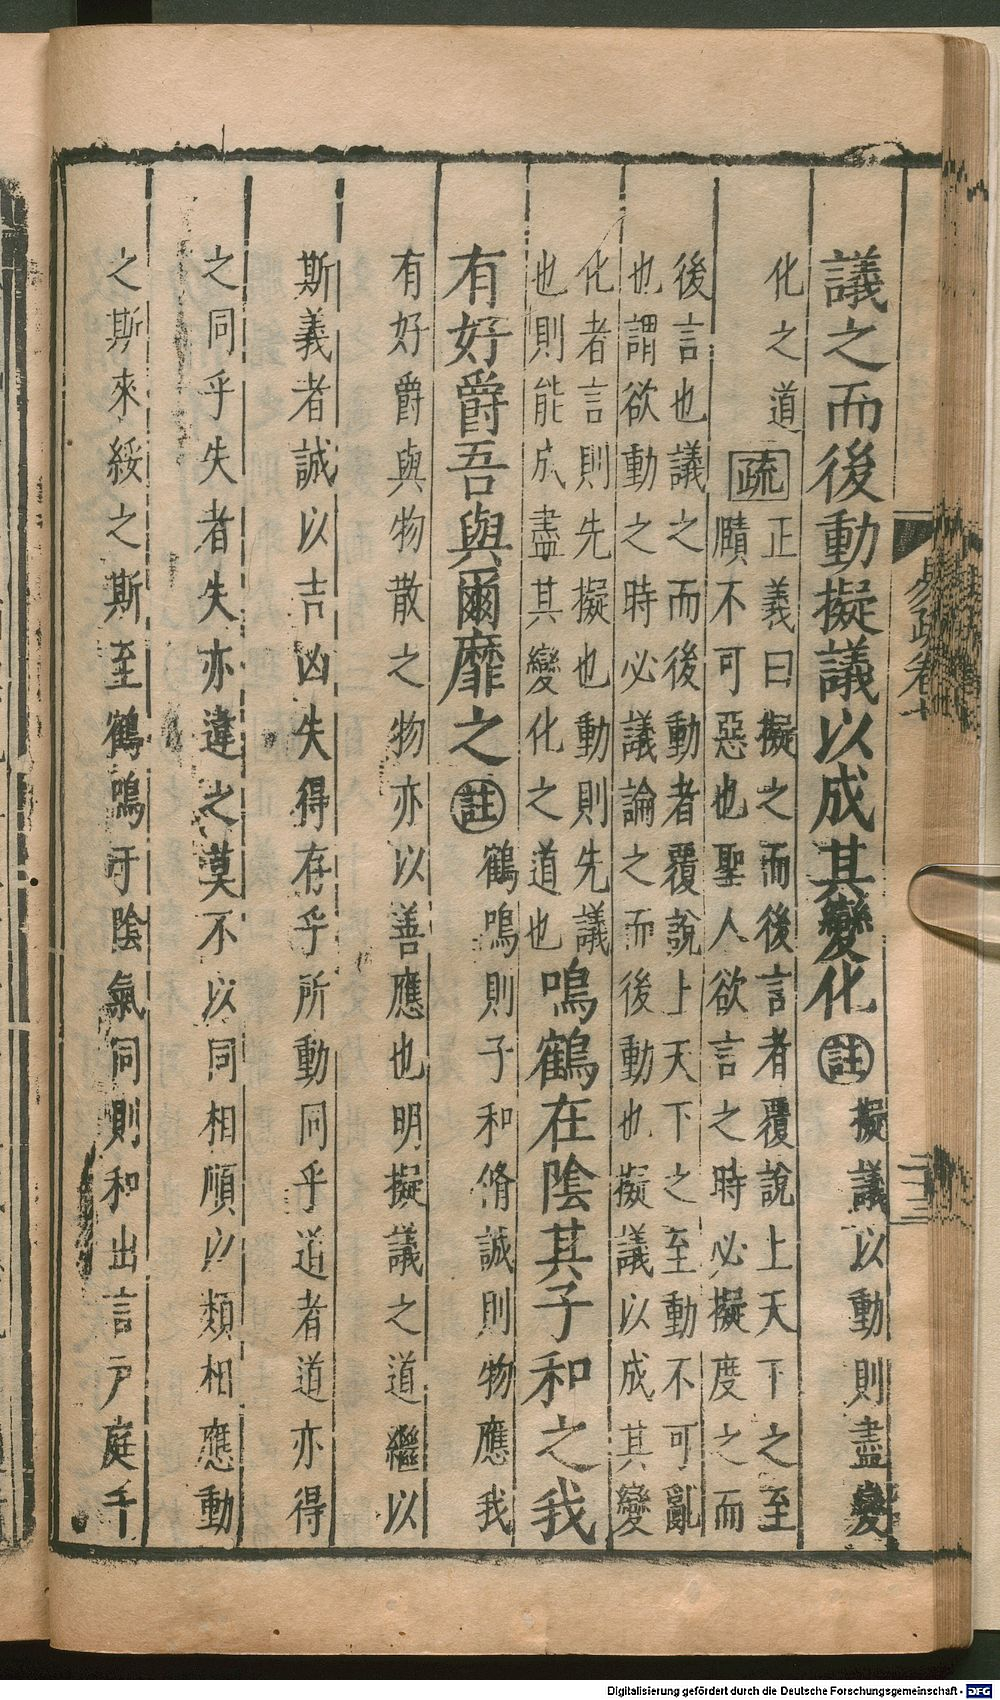 議之而後動擬議以成其變化㊟擬議以動則盡變
化之道
疏正義曰擬之而後言者覆說上天下之至
賾不可惡也聖人欲言之時必擬度之而
後言也議之而後動者覆說上天下之至動不可亂
也謂欲動之時必議論之而後動也擬議以成其變
化者言則先擬也動則先議
也則能成盡其變化之道也
鳴鶴在陰其子和之我
有好爵吾與爾靡之註鶴鳴則子和脩誠則物應我
有好爵與物散之物亦以善應也明擬議之道繼以
斯義者誠以吉凶失得存乎所動同乎道者道亦得
之同乎失者失亦違之莫不以同相順以類相應動
之斯來綏之斯至鶴鳴于陰氣同則和出言戶庭千
易疏卷十
二三
Digitalisierung gefördert durch die Deutsche Forschungsgemeinschaft - DFG